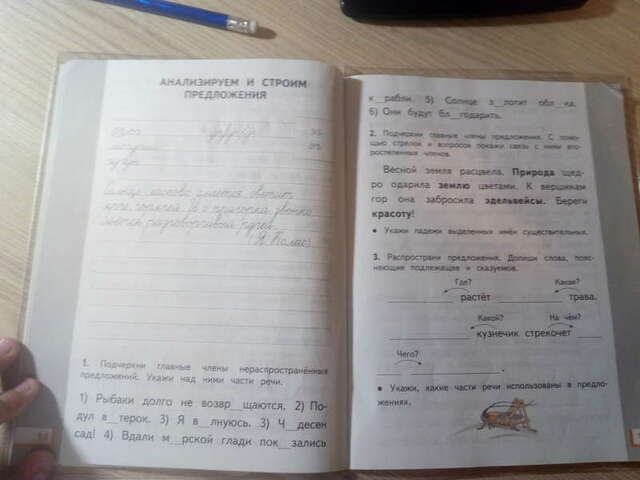 АНАЛИЗИРУЕМ И СТРОИМ
ПРЕДЛОЖЕНИЯ
ласково
звонко
разговорчивой ручей
(Я. Колас)
1. Подчеркни главные члены нераспространённых
предложений. Укажи над ними части речи.
1) Рыбаки долго не возвр__щаются. 2) По-
дул в__терок. 3) Я в__лнуюсь. 3) Ч__десен
сад! 4) Вдали м__рской глади пок__зались
к__рабли. 5) Солнце з__лотит обл__ка.
6) Они будут бл__годарить.
2. Подчеркни главные члены предложения. С помо-
щью стрелок и вопросов покажи связь с ними вто-
ростепенных членов.
Весной земля расцвела. Природа щед-
ро одарила землю цветами. К вершинам
гор она забросила эдельвейсы. Береги
красоту!
• Укажи падежи выделенных имён существительных.
3. Распространи предложения. Допиши слова, пояс-
няющие подлежащее и сказуемое.
Где? Какая?
растёт трава.
Какой? На чём?
кузнечик стрекочет
Чего?
• Укажи, какие части речи использованы в предло-
жениях.